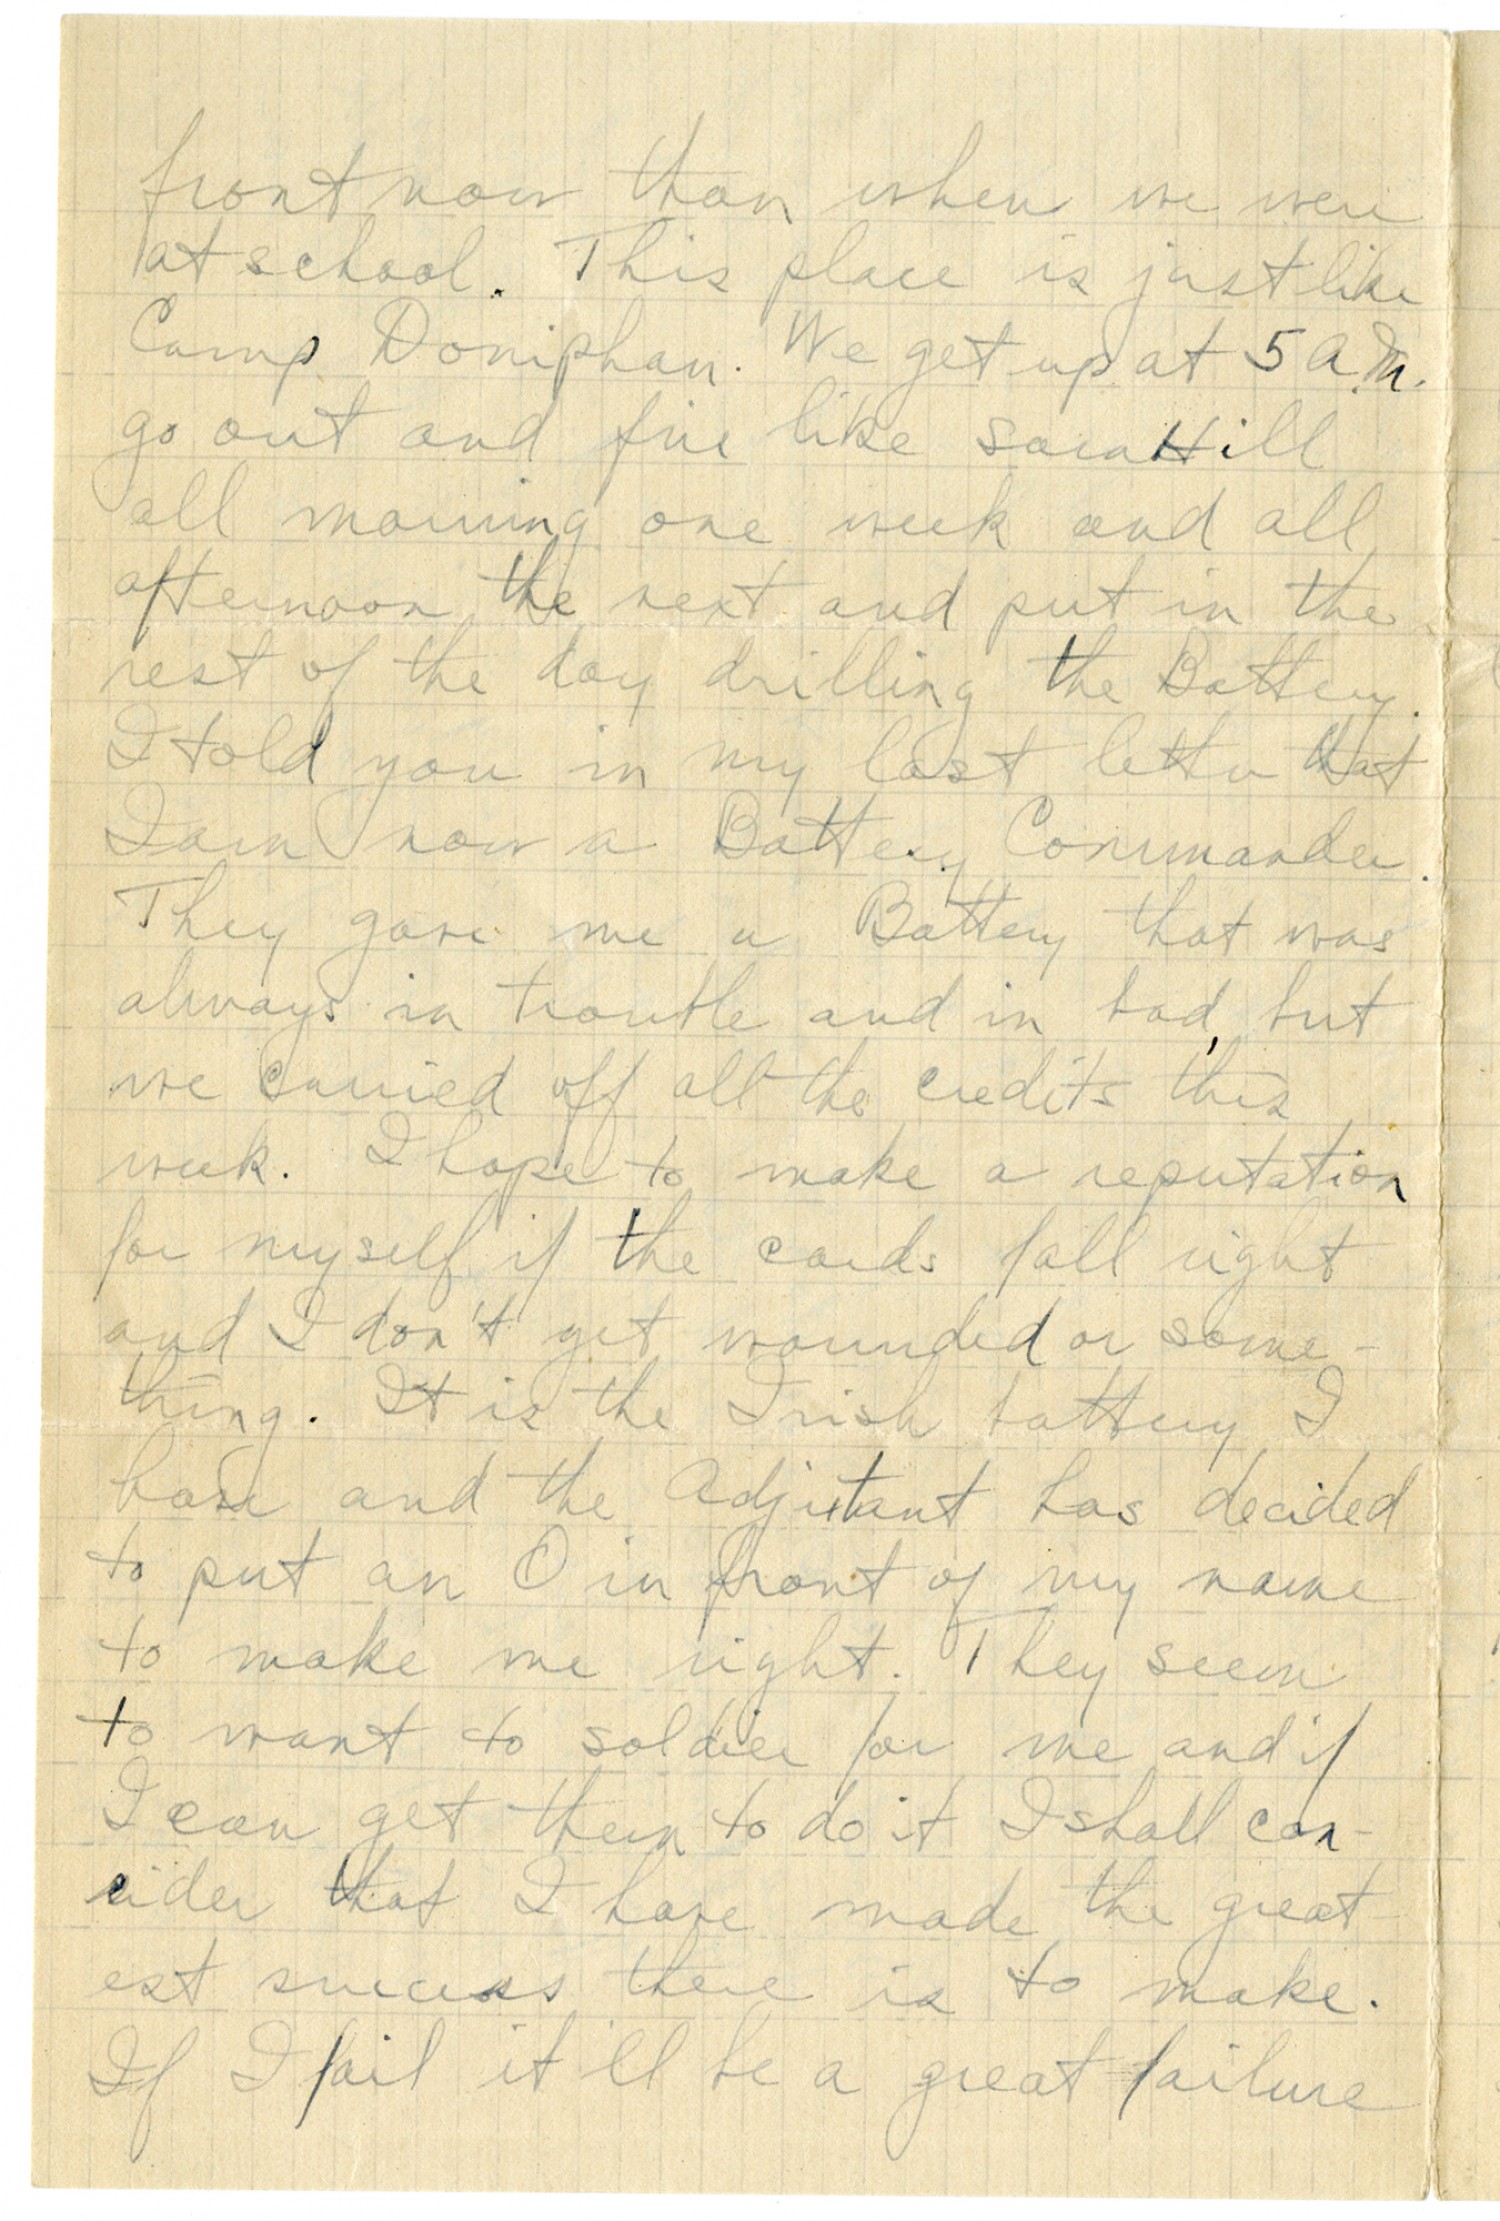 front now than when we were
at school. This place is just like
Camp Doniphan. We get up at 5 A.M.
go out and fire like Sam Hill
all morning one week and all
afternoon the next and put in the
rest of the day drilling the Battery.
I told you in my last letter that
I am now a Battery Commander.
They gave me a Battery that was
always in trouble and in bad, but
we carried off all the credits this
week. I hope to make a reputation
for myself if the cards fall right
and I don't get wounded or some-
thing. It is the Irish battery I
have and the Adjutant has decided
to put an O in front of my name
to make me right. They seem
to want to soldier for me and if
I can get them to do it I shall con-
sider that I have made the great-
est success there is to make.
If I fail it'll be a great failure